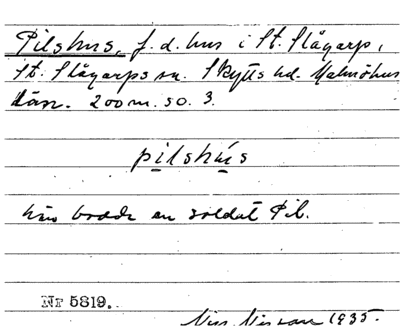 Pilshus, f. d. hus i St. Slågarp,
St. Slågarps sn. Skytts hd. Malmöhus
län. 200 m. so. 3.
pilshús
här bodde en soldat Pil.
Nr 5819.
Nils Nilsson 1935.